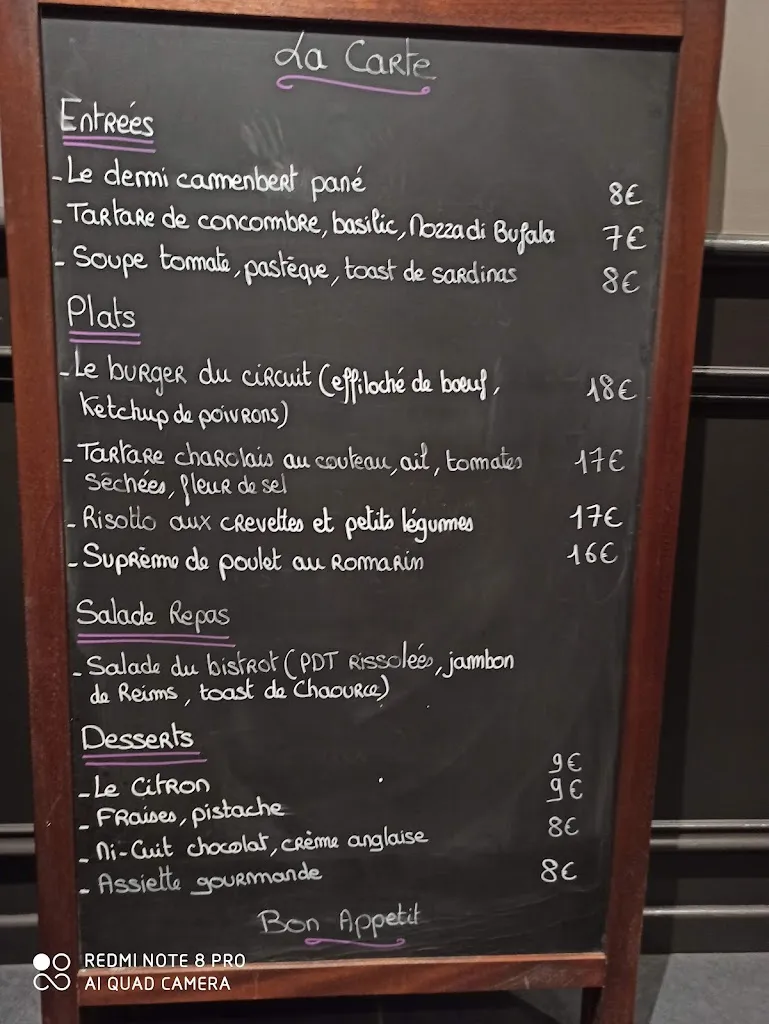 La Carte
Entrées
- Le demi camenbert pané 8€
- Tartare de concombre, basilic, Mozza di Bufala 7€
- Soupe tomate, pastèque, toast de sardinas 8€
Plats
- Le burger du circuit (effiloché de boeuf, 18€
Ketchup de poivrons)
- Tartare charolais au couteau, ail, tomates 17€
séchées, fleur de sel
- Risotto aux crevettes et petits légumes 17€
- Suprême de poulet au Romarin 16€
Salade Repas
- Salade du bistrot (PDT Rissolées, jambon
de Reims, toast de Chaource)
Desserts
- Le Citron 9€
- Fraises, pistache 9€
- Mi-Cuit chocolat, crème anglaise 8€
- Assiette gourmande 8€
Bon Appetit
REDMI NOTE 8 PRO
AI QUAD CAMERA